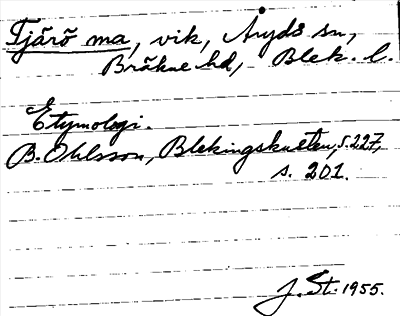 Tjärö ma, vik, Åryds sn,
Bräkne hd, Blek. l.
Etymologi.
B. Ohlsson, Blekingskusten, s. 227,
s. 201.
J. St. 1955.